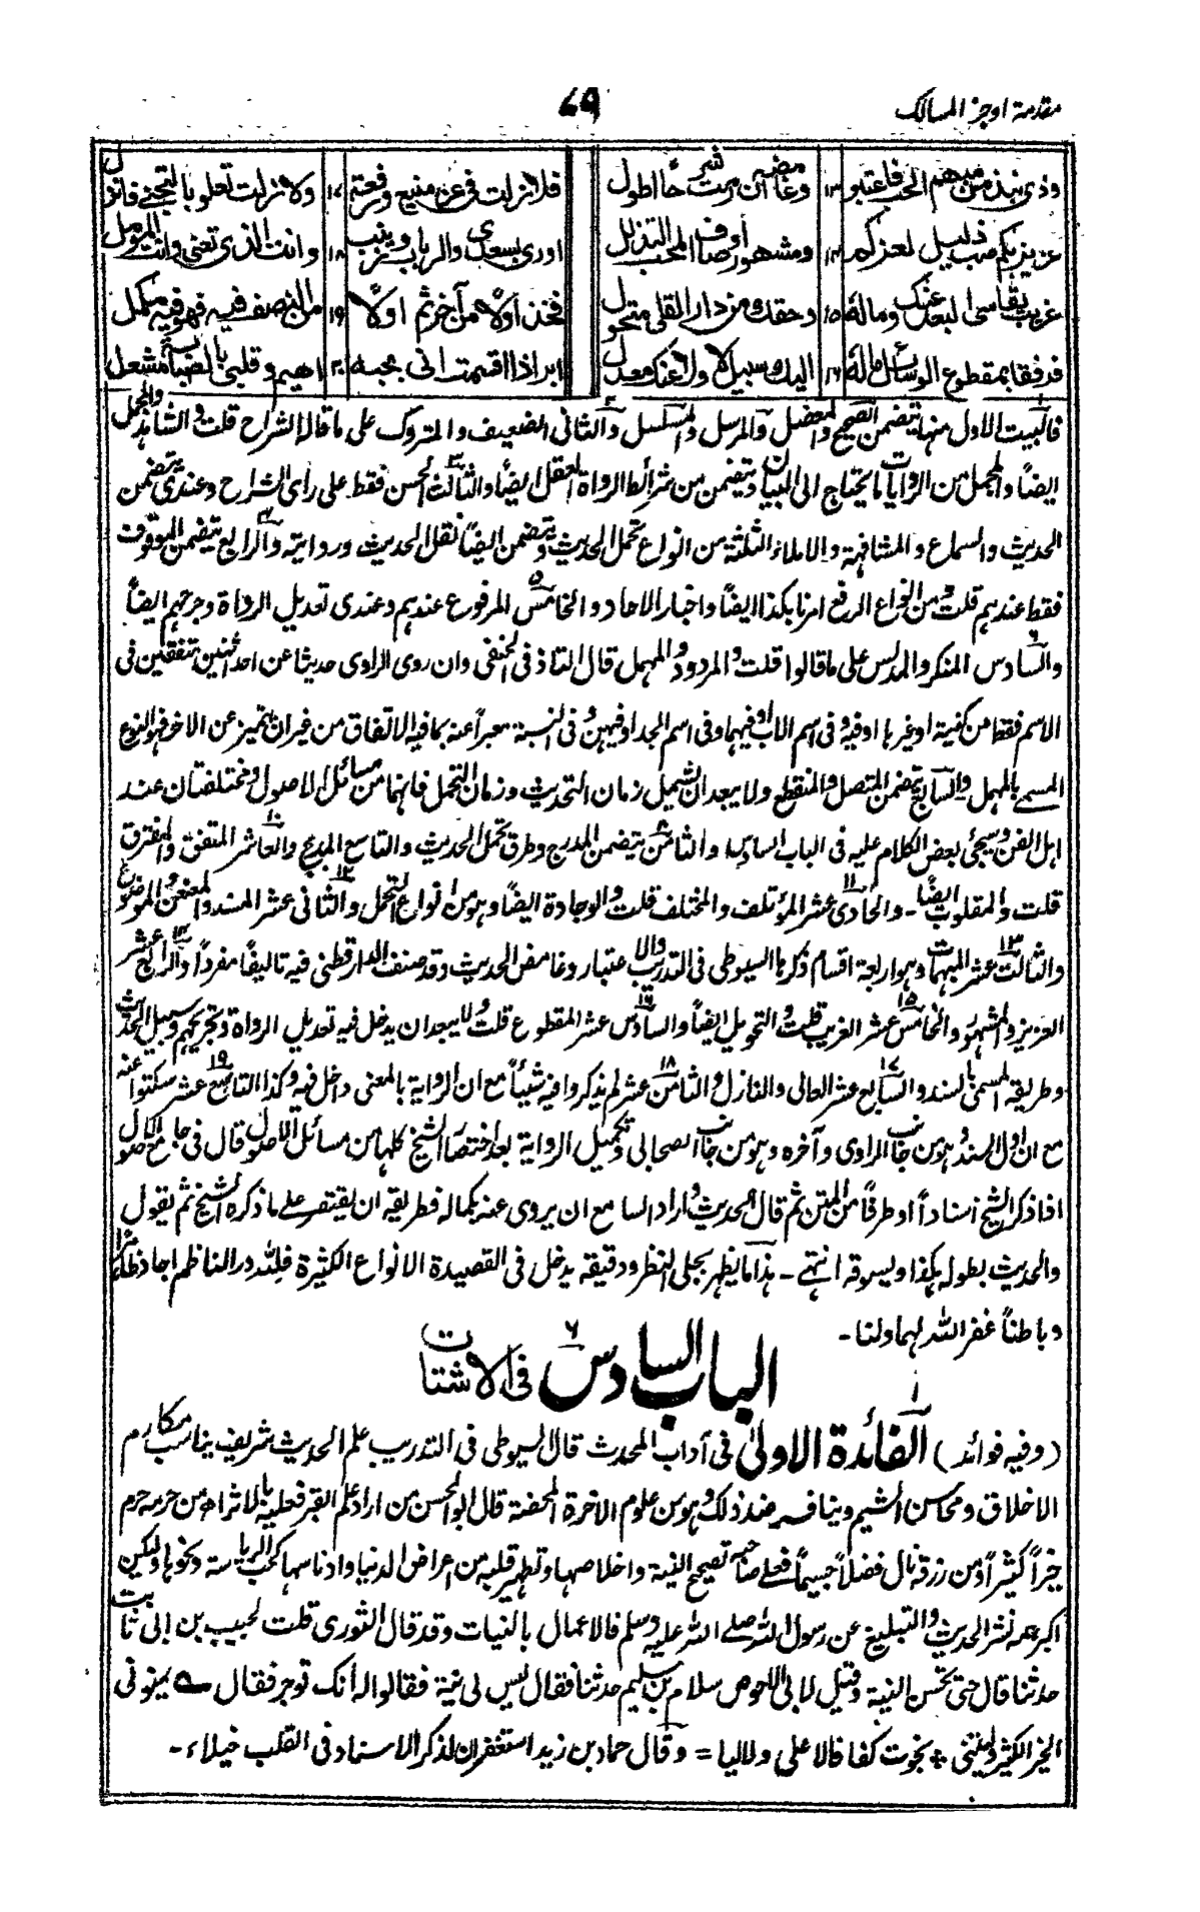 مقدمة اوجز المسالك
٦٩
وذى نبذ من مبهم الحب فاعتبر ١٣ وغامضه ان رمت شرحا اطول
فلا زلت فى عز منيع ورفعة ١٧ ولا زلت تعلو بالتجنى فانزل
عزيز بكم صب ذليل لعزكم ١٤ ومشهور اوصاف المحب التذلل
اورى بسعدى والرباب وزينب ١٨ وانت الذى تعنى وانت المؤمل
غريب يقاسى البعد عنك وماله ١٥ وحقك من دار القلى متحول
فخذ اولا من آخر ثم اولا ١٩ من النصف فيه فهو فيه مكمل
فرفقا بمقطوع الوسائل ماله ١٦ اليك سبيل لا ولا عنك معدل
ابر اذا اقسمت انى بحبه ٢٠ اهيم وقلبى بالصبابة مشعل
فالبيت الاول منها يتضمن الصحيح والمعضل والمرسل والمسلسل والثانى الضعيف والمتروك على ما قاله الشراح قلت والشاهد والمجمل
ايضاً والمجمل من الروايات ما يحتاج الى البيان ويتضمن من شرائط الرواة العقل ايضاً والثالث الحسن فقط على راى الشراح وعندى يتضمن
الحديث والسماع والمشافهة والاملاء الثلثة من انواع تحمل الحديث ويتضمن ايضاً نقل الحديث وروايته والرابع يتضمن الموقوف
فقط عندهم قلت ومن انواع الرفع امرنا بكذا ايضاً واخبار الاحاد والخامس المرفوع عندهم وعندى تعديل الرواة وجرحهم ايضاً
والسادس المنكر والمدلس على ما قالوا قلت والمردود والمهمل قال التاذفى الحنفى وان روى الراوى حديثا عن احد اثنين متفقين فى
الاسم فقط من كنية او غيرها او فيه وفى اسم الاب او فيهما وفى اسم الجد او فيهن وفى النسبة معبراً عنه بما فيه الاتفاق من غير ان يتميز عن الاخر فهو النوع
المسمى بالمهمل والسابع يتضمن المتصل والمنقطع ولا يبعد ان يشمل زمان التحديث وزمان التحمل فانهما من مسائل الاصول ومختلفتان عند
اهل الفن وسيجئ بعض الكلام عليه فى الباب السادس والثامن يتضمن المدرج وطرق تحمل الحديث والتاسع المدبج والعاشر المتفق والمفترق
قلت والمقلوب ايضاً - والحادى عشر المؤتلف والمختلف قلت والوجادة ايضاً وهو من انواع التحمل والثانى عشر المسند والمعنعن والموضوع
والثالث عشر المبهمات وهو اربعة اقسام ذكرها السيوطى فى التدريب والاعتبار وغامض الحديث وقد صنف الدارقطنى فيه تاليفاً مفرداً والرابع عشر
العزيز والمشهور والخامس عشر الغريب قلت والتحويل ايضاً والسادس عشر المقطوع قلت ولا يبعد ان يدخل فيه تعديل الرواة وتجريحهم وسبيل الحديث
وطريقه المسمى بالسند والسابع عشر العالى والنازل والثامن عشر لم يذكروا فيه شيئاً مع ان الرواية بالمعنى داخل فيه وكذا التاسع عشر سكتوا عنه
مع ان اول السند وهو من جانب الراوى وآخره وهو من جانب الصحابى وتكميل الرواية بعد اختصار الشيخ كلها من مسائل الاصول قال فى جامع الاصول
اذا ذكر الشيخ اسناداً او طرفاً من المتن ثم قال الحديث واراد السامع ان يروى عنه بكماله فطريقه ان يقتصر على ما ذكره الشيخ ثم يقول
والحديث بطوله هكذا ويسوقه انتهى - هذا ما يظهر بجلى النظر ودقيقه يدخل فى القصيدة الانواع الكثيرة فلله در الناظم اجاد ظاهراً
وباطناً غفر الله لهما ولنا -
الباب السادس ٦ فى الاشتات
(وفيه فوائد) الفائدة الاولى ١ فى آداب المحدث قال السيوطى فى التدريب علم الحديث شريف يناسب مكارم
الاخلاق ومحاسن الشيم وينافر ضد ذلك وهو من علوم الاخرة المحضة قال ابو الحسن من اراد علم القبر فعليه بالاثر اه من حرمه حرم
خيراً كثيراً ومن رزقه نال فضلاً جسيماً فعلى صاحبه تصحيح النية واخلاصها وتطهير قلبه من اعراض الدنيا وادناسها كحب الرياسة ونحوها وليكن
اكبر همه نشر الحديث والتبليغ عن رسول الله صلى الله عليه وسلم فالاعمال بالنيات وقد قال الثورى قلت لحبيب بن ابى ثابت
حدثنا قال حتى تحسن النية وقيل لابى الاحوص سلام بن سليم حدثنا فقال ليس لى نية فقالوا له انك توجر فقال ے يمنونى
الخير الكثير وليتنى ٭ نجوت كفافا لا على ولا ليا = وقال حماد بن زيد استغفر الله ان لذكر الاسناد فى القلب خيلاء -